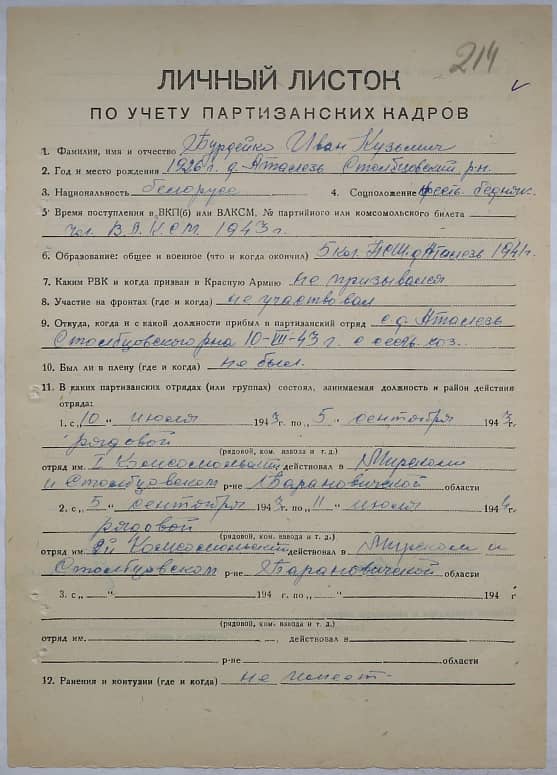 214
ЛИЧНЫЙ ЛИСТОК
ПО УЧЕТУ ПАРТИЗАНСКИХ КАДРОВ
1. Фамилия, имя и отчество Бурдейко Иван Кузьмич
2. Год и место рождения 1926 г. д. Аталезь Столбцовский р-н.
3. Национальность белорус 4. Соцположение крест. бедняк.
5. Время поступления в ВКП(б) или ВЛКСМ, № партийного или комсомольского билета
чл. В.Л.К.С.М. 1943 г.
6. Образование: общее и военное (что и когда окончил) 5 кл. НСШ д. Аталезь 1941 г.
7. Каким РВК и когда призван в Красную Армию не призывался
8. Участие на фронтах (где и когда) не участвовал
9. Откуда, когда и с какой должности прибыл в партизанский отряд с д. Аталезь
Столбцовского р-на 10-VII-43 г. с сельс. хоз.
10. Был ли в плену (где и когда) не был.
11. В каких партизанских отрядах (или группах) состоял, занимаемая должность и район действия
отряда:
1. с „10" июля 1943 г. по „5" сентября 1943 г.
рядовой
(рядовой, ком. взвода и т. д.)
отряд им. I Комсомольский действовал в Мирском
и Столбцовском р-не Барановичской области
2. с „5" сентября 1943 г. по „11" июля 1944 г.
рядовой
(рядовой, ком. взвода и т. д.)
отряд им. Комсомольский действовал в Мирском и
Столбцовском р-не Барановичской области
3. с „ " 194 г. по „ " 194 г
(рядовой, ком. взвода и т. д.)
отряд им. , действовал в
р-не области
12. Ранения и контузии (где и когда) не имеет